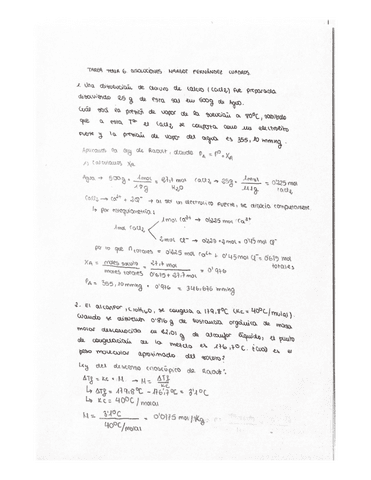 1
TAREA TEMA 6 DISOLUCIONES MARCOS FERNÁNDEZ CUADROS
1. Una disolución de cloruro de calcio (CaCl2) fue preparada
disolviendo 25g de esta sal en 500g de Agua.
Cuál será la presión de vapor de la solución a 80ºC, sabiendo
que a esta Tª el CaCl2 se comporta como un electrolito
fuerte y la presión de vapor del agua es 355,10 mmHg
Aplicamos la ley de Raoult, donde PA = Pº · XA
Agua → 500g · 1mol / 18g H2O = 27,7 mol CaCl2 → 25g · 1mol / 111g = 0'225 mol CaCl2
CaCl2 → Ca²⁺ + 2Cl⁻ → al ser un electrolito fuerte, se disocia completamente
↳ por estequiometría:
1 mol CaCl2
1 mol Ca²⁺ → 0'225 mol Ca²⁺
2 mol Cl⁻ → 0'225 · 2 mol = 0'45 mol Cl⁻
por lo que n totales = 0'225 mol Ca²⁺ + 0'45 mol Cl⁻ = 0'675 mol totales
XA = moles / moles totales = 27,7 mol / 0'675 + 27,7 mol = 0'976
PA = 355,10 mmHg · 0'976 = 346' mmHg
2. El alcanfor, C10H16O, se congela a 179,8ºC (Kc = 40ºC/molal).
Cuando se disuelven 0'816g de sustancia orgánica de masa
molar desconocida en 22,01g de alcanfor líquido, el punto
de congelación de la mezcla es 176,7ºC ¿Cuál es el
peso molecular aproximado del soluto?
Ley del descenso crioscópico de Raoult:
ΔTf = Kc · M → M = ΔTf / Kc
↳ ΔTf = 179,8ºC - 176,7ºC = 3'1ºC
↳ Kc = 40ºC/molal
M = 3'1ºC / 40ºC/molal = 0'0775 mol/Kg